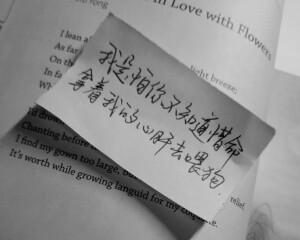 in Love with Flowers
I lean
As far
light breeze;
On
In
我是怕你不知道惜命
拿着我的心肝去喂狗
relief,
Chanting before
I find my gown too large, bu
It's worth while growing languid for my